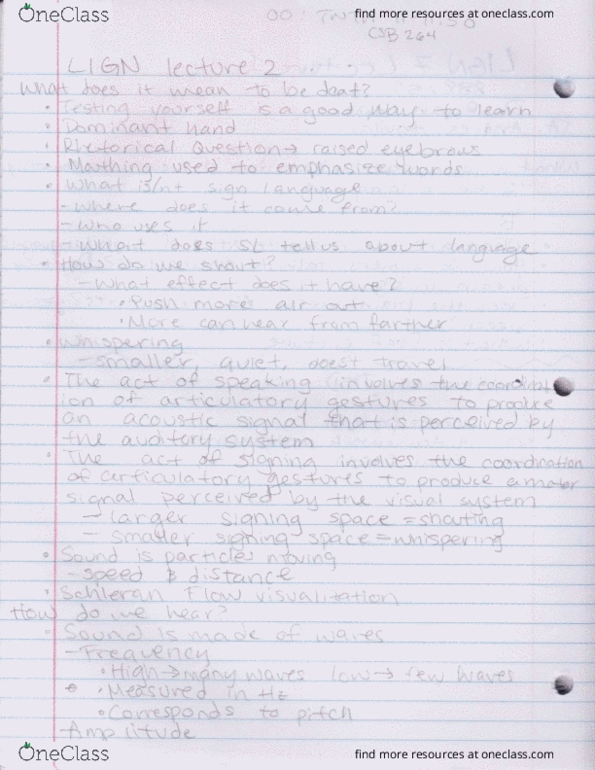 OneClass
find more resources at oneclass.com
CSB 264
LIGN lecture 2
What does it mean to be deaf?
• Testing yourself is a good way to learn
• Dominant hand
• Rhetorical Question → raised eyebrows
• Mouthing used to emphasize words
• What is/nt sign language
- where does it come from?
- who uses it
- what does SL tell us about language
• How do we shout?
- what effect does it have?
• Push more air out
• More can hear from farther
• Whispering
- smaller, quiet, doest travel
• The act of speaking involves the coordinat
ion of articulatory gestures to produce
an acoustic signal that is perceived by
the auditory system
• The act of signing involves the coordination
of articulatory gestures to produce a motor
signal perceived by the visual system
- larger signing space = shouting
- smaller signing space = whispering
• Sound is particles moving
- speed & distance
• Schleran Flow visualization
How do we hear?
• Sound is made of waves
- Frequency
• High → many waves low → few waves
• Measured in Hz
• Corresponds to pitch
- Amplitude
OneClass
find more resources at oneclass.com